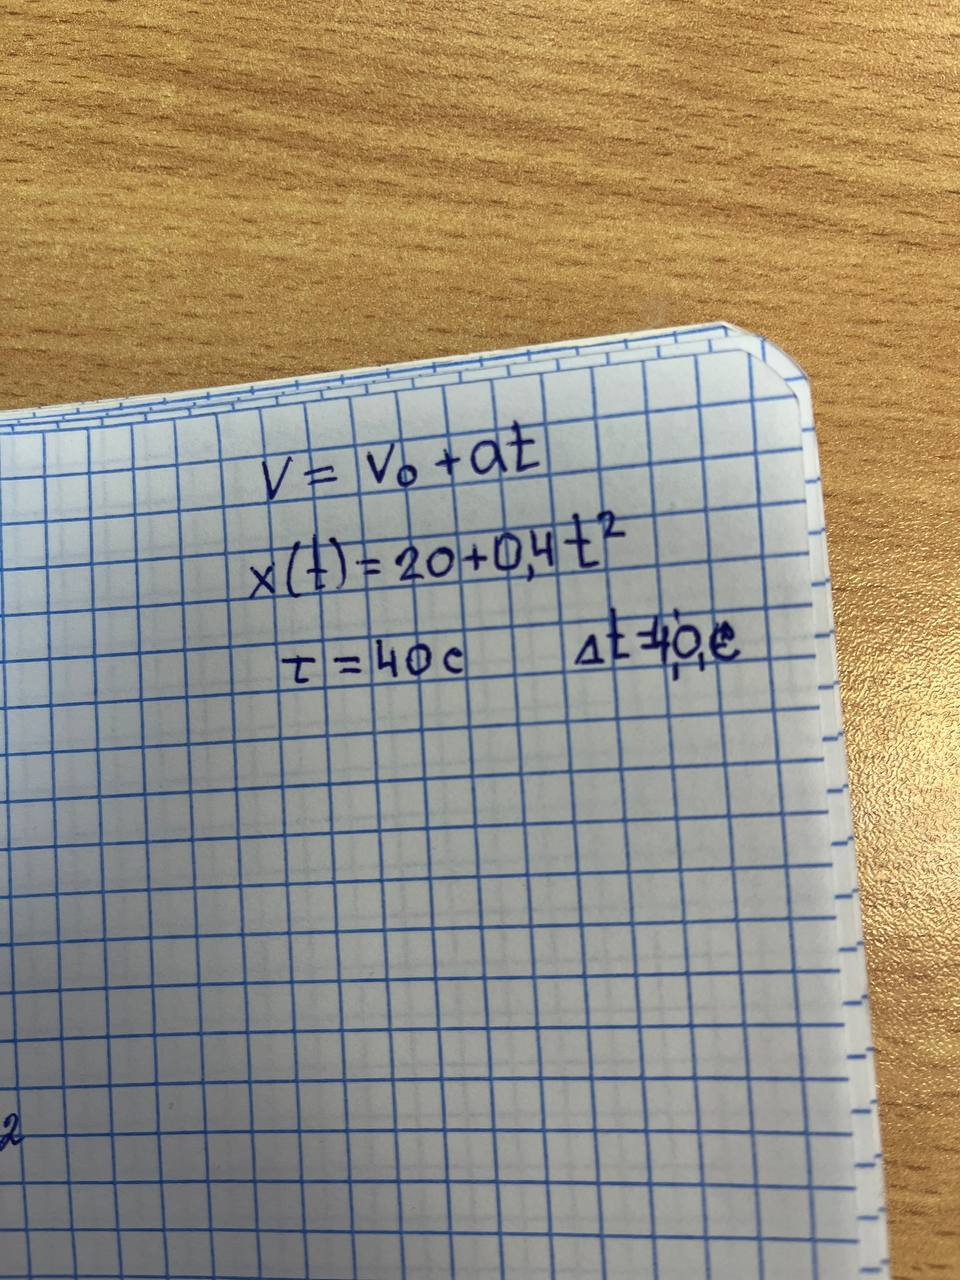 V = V₀ + at
x(t) = 20 + 0,4 t²
τ = 40 с Δt = 40, с
2